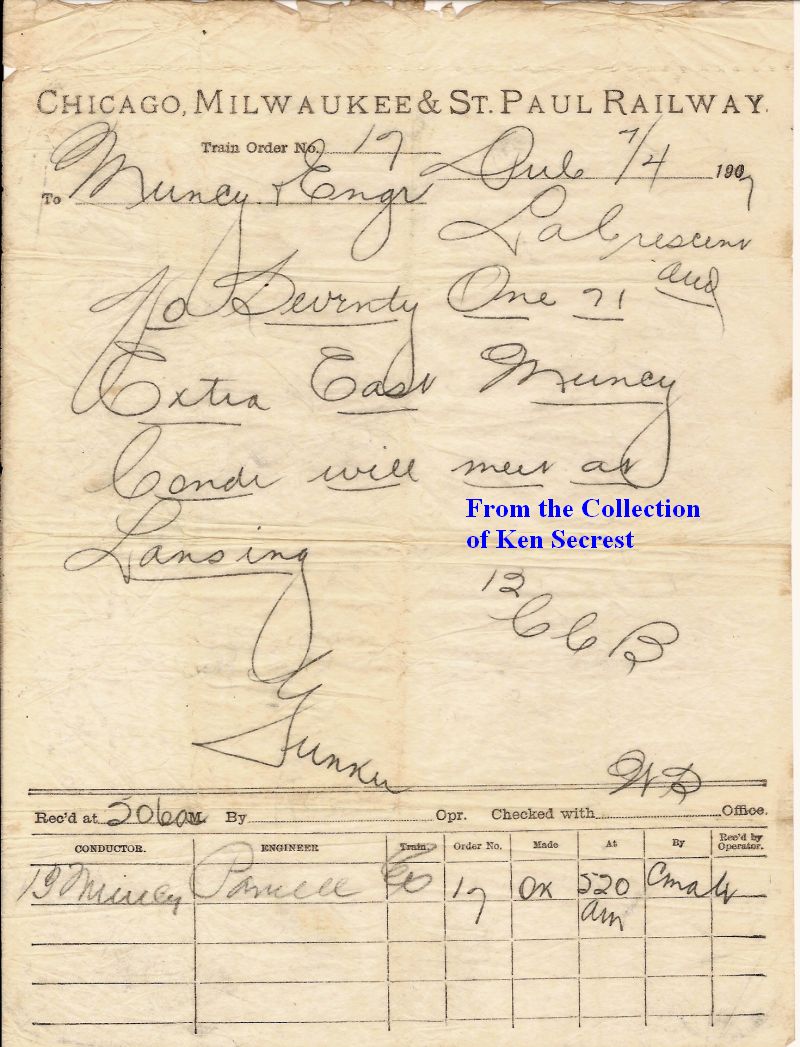 CHICAGO, MILWAUKEE & ST. PAUL RAILWAY.
Train Order No. 17
To Muncy & Engr 7/4 1907
La Crescent
No Seventy One 71 and
Extra East Muncy
Condr will meet at
Lansing
From the Collection
of Ken Secrest
12
CCB
Rec'd at 506am M. By Opr. Checked with Office.
CONDUCTOR. ENGINEER Train. Order No. Made At By Rec'd by Operator.
Muncy Ex 17 OK 520 am